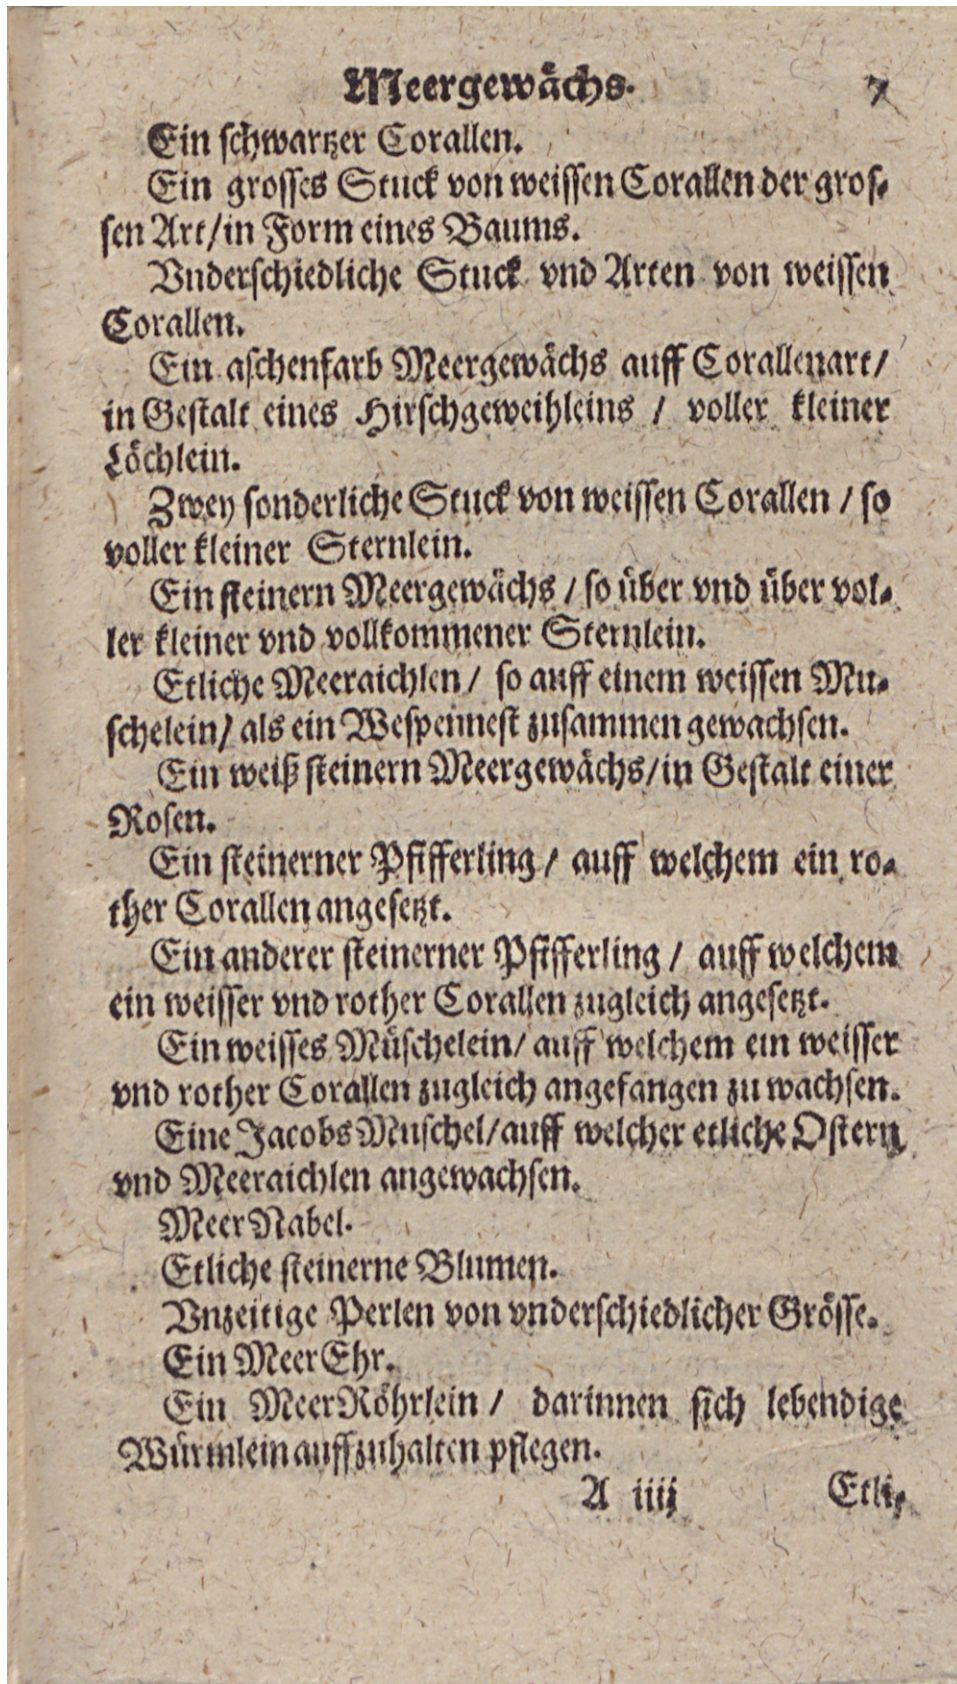 Meergewächs. 7
Ein schwartzer Corallen.
Ein grosses Stuck von weissen Corallen der gros-
sen Art/in Form eines Baums.
Vnderschiedliche Stuck vnd Arten von weissen
Corallen.
Ein aschenfarb Meergewächs auff Corallenart/
in Gestalt eines Hirschgeweihleins / voller kleiner
Löchlein.
Zwey sonderliche Stuck von weissen Corallen / so
voller kleiner Sternlein.
Ein steinern Meergewächs / so über vnd über vol-
ler kleiner vnd vollkommener Sternlein.
Etliche Meeraichlen / so auff einem weissen Mu-
schelein/ als ein Wespennest zusammen gewachsen.
Ein weiß steinern Meergewächs/in Gestalt einer
Rosen.
Ein steinerner Pfifferling / auff welchem ein ro-
ther Corallen angesetzt.
Ein anderer steinerner Pfifferling / auff welchem
ein weisser vnd rother Corallen zugleich angesetzt.
Ein weisses Müschelein/ auff welchem ein weisser
vnd rother Corallen zugleich angefangen zu wachsen.
Eine Jacobs Muschel/auff welcher etliche Ostern
vnd Meeraichlen angewachsen.
Meer Nabel.
Etliche steinerne Blumen.
Vnzeitige Perlen von vnderschiedlicher Grösse.
Ein Meer Ehr.
Ein MeerRöhrlein / darinnen sich lebendige
Würmlein auffzuhalten pflegen.
A iiij Etli-